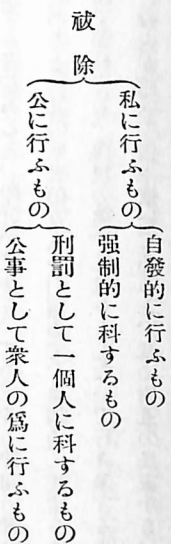 祓除
私に行ふもの
自發的に行ふもの
强制的に科するもの
公に行ふもの
刑罰として一個人に科するもの
公事として衆人の爲に行ふもの